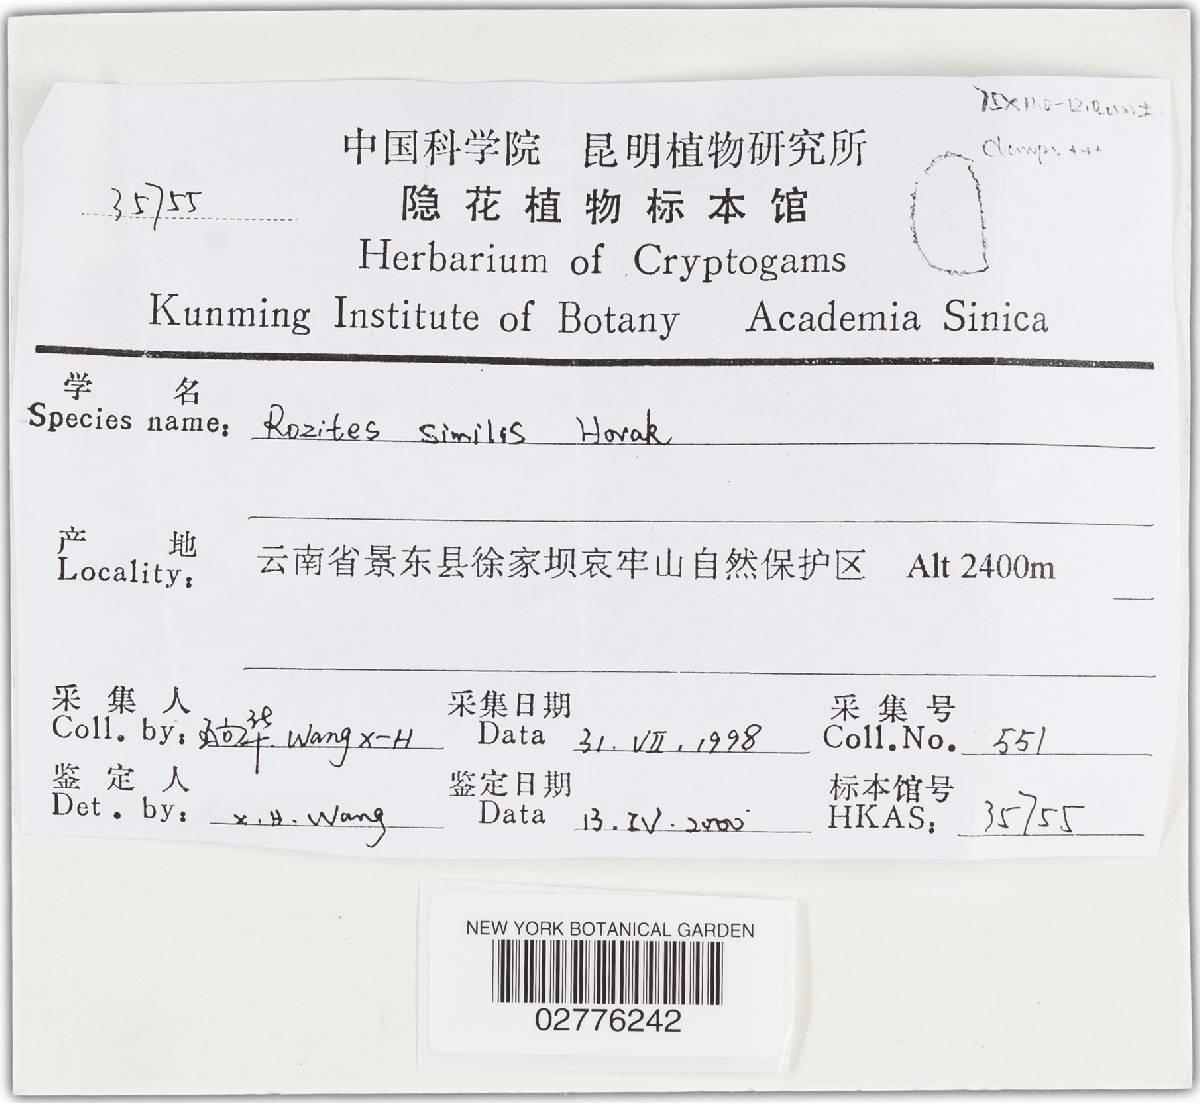 中国科学院 昆明植物研究所
35755
隐花植物标本馆
Herbarium of Cryptogams
Kunming Institute of Botany Academia Sinica
学 名
Species name: Rozites similis Horak
产 地
Locality: 云南省景东县徐家坝哀牢山自然保护区 Alt 2400m
采集人 采集日期 采集号
Coll. by: Wang X-H Data 31. VII. 1998 Coll. No. 551
鉴定人 鉴定日期 标本馆号
Det. by: X. H. Wang Data 13. IV. 2000 HKAS: 35755
NEW YORK BOTANICAL GARDEN
02776242